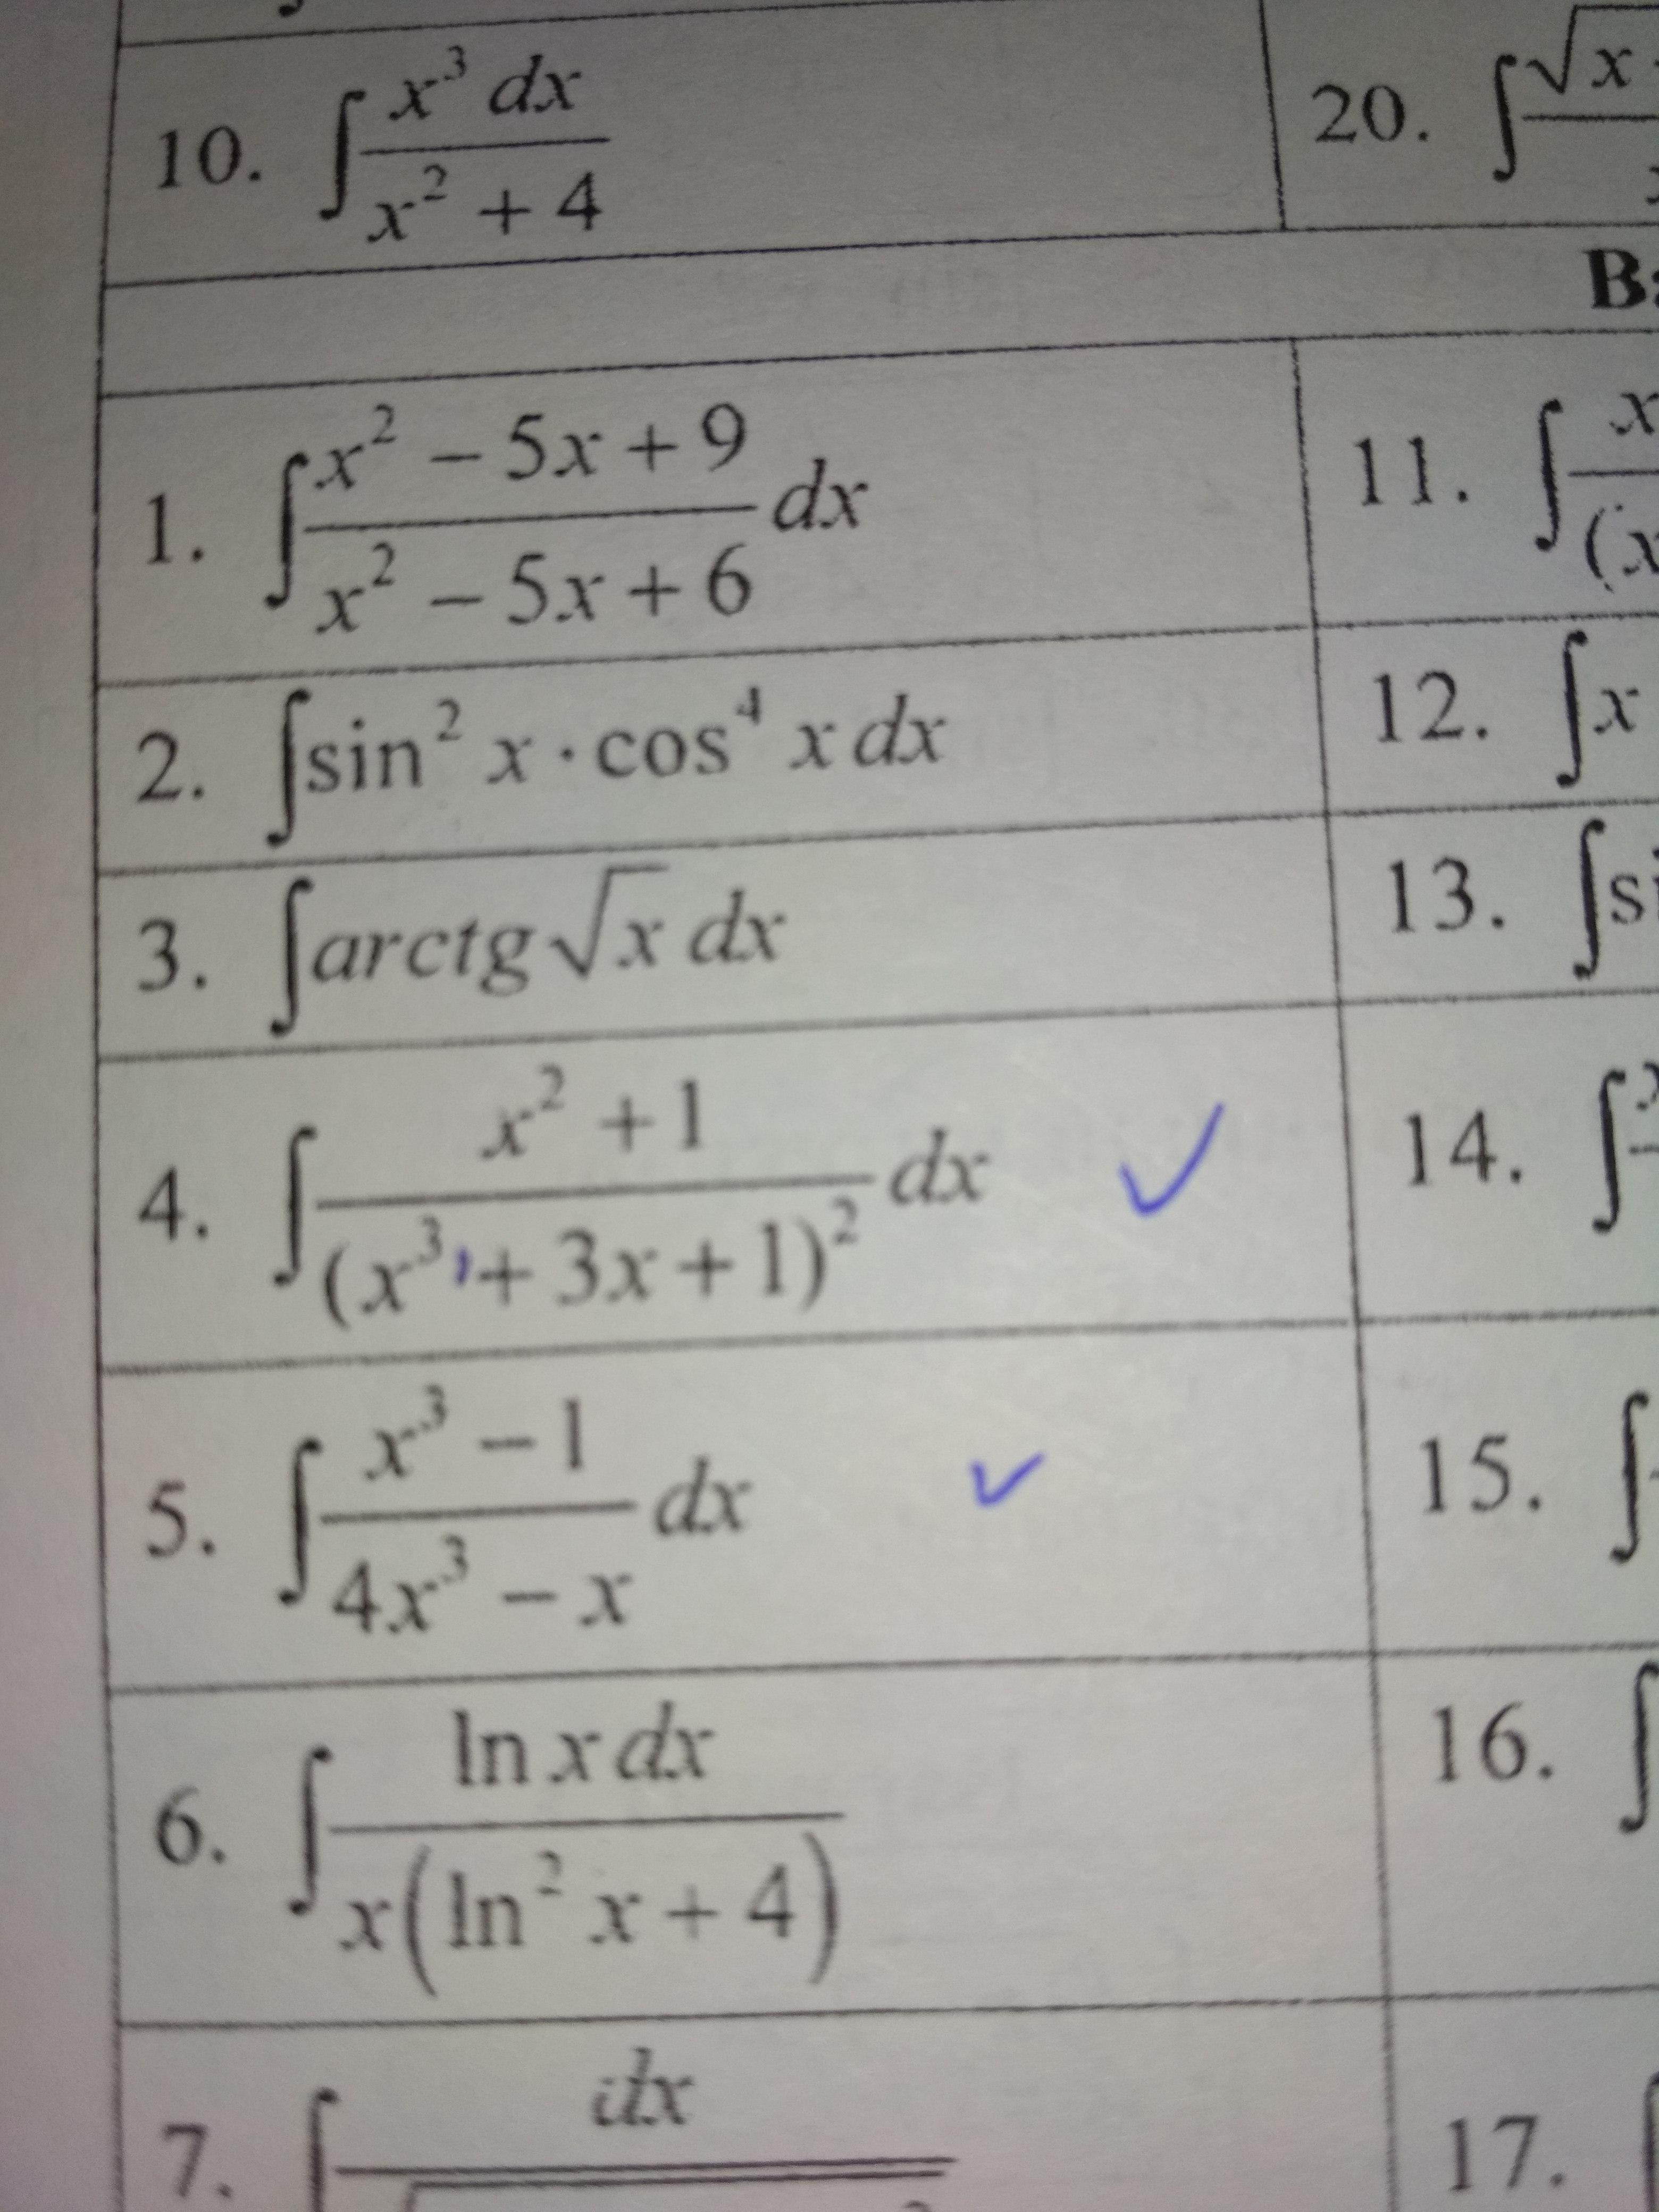 10. ∫ x³ dx / x² + 4
20. ∫ √x
1. ∫ x² − 5x + 9 / x² − 5x + 6 dx
11. ∫ x / (x
2. ∫ sin² x · cos⁴ x dx
12. ∫ x
3. ∫ arctg √x dx
13. ∫ si
4. ∫ x² + 1 / (x³ + 3x + 1)² dx
14. ∫
5. ∫ x³ − 1 / 4x³ − x dx
15. ∫
6. ∫ ln x dx / x(ln² x + 4)
16. ∫
7. ∫ dx
17.